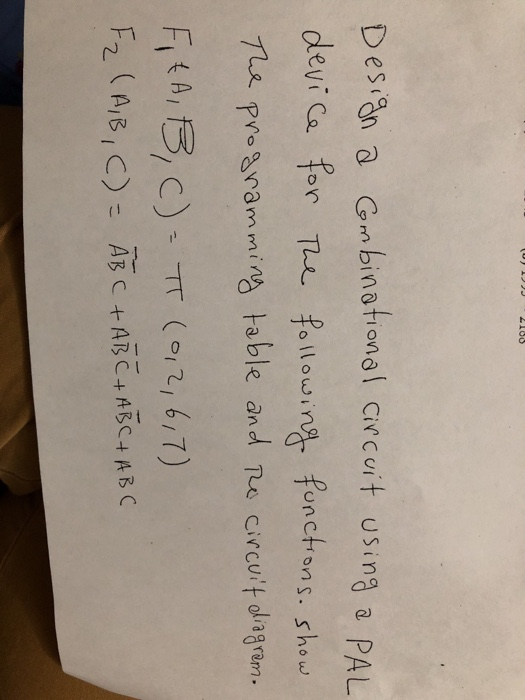 Design a Combinational circuit using a PAL
device for The following functions. show
The programming table and The circuit diagram.
F₁ (A, B, C) = π (0,2,6,7)
F₂ (A,B,C) = A̅B̅C + AB̅C̅ + AB̅C + ABC